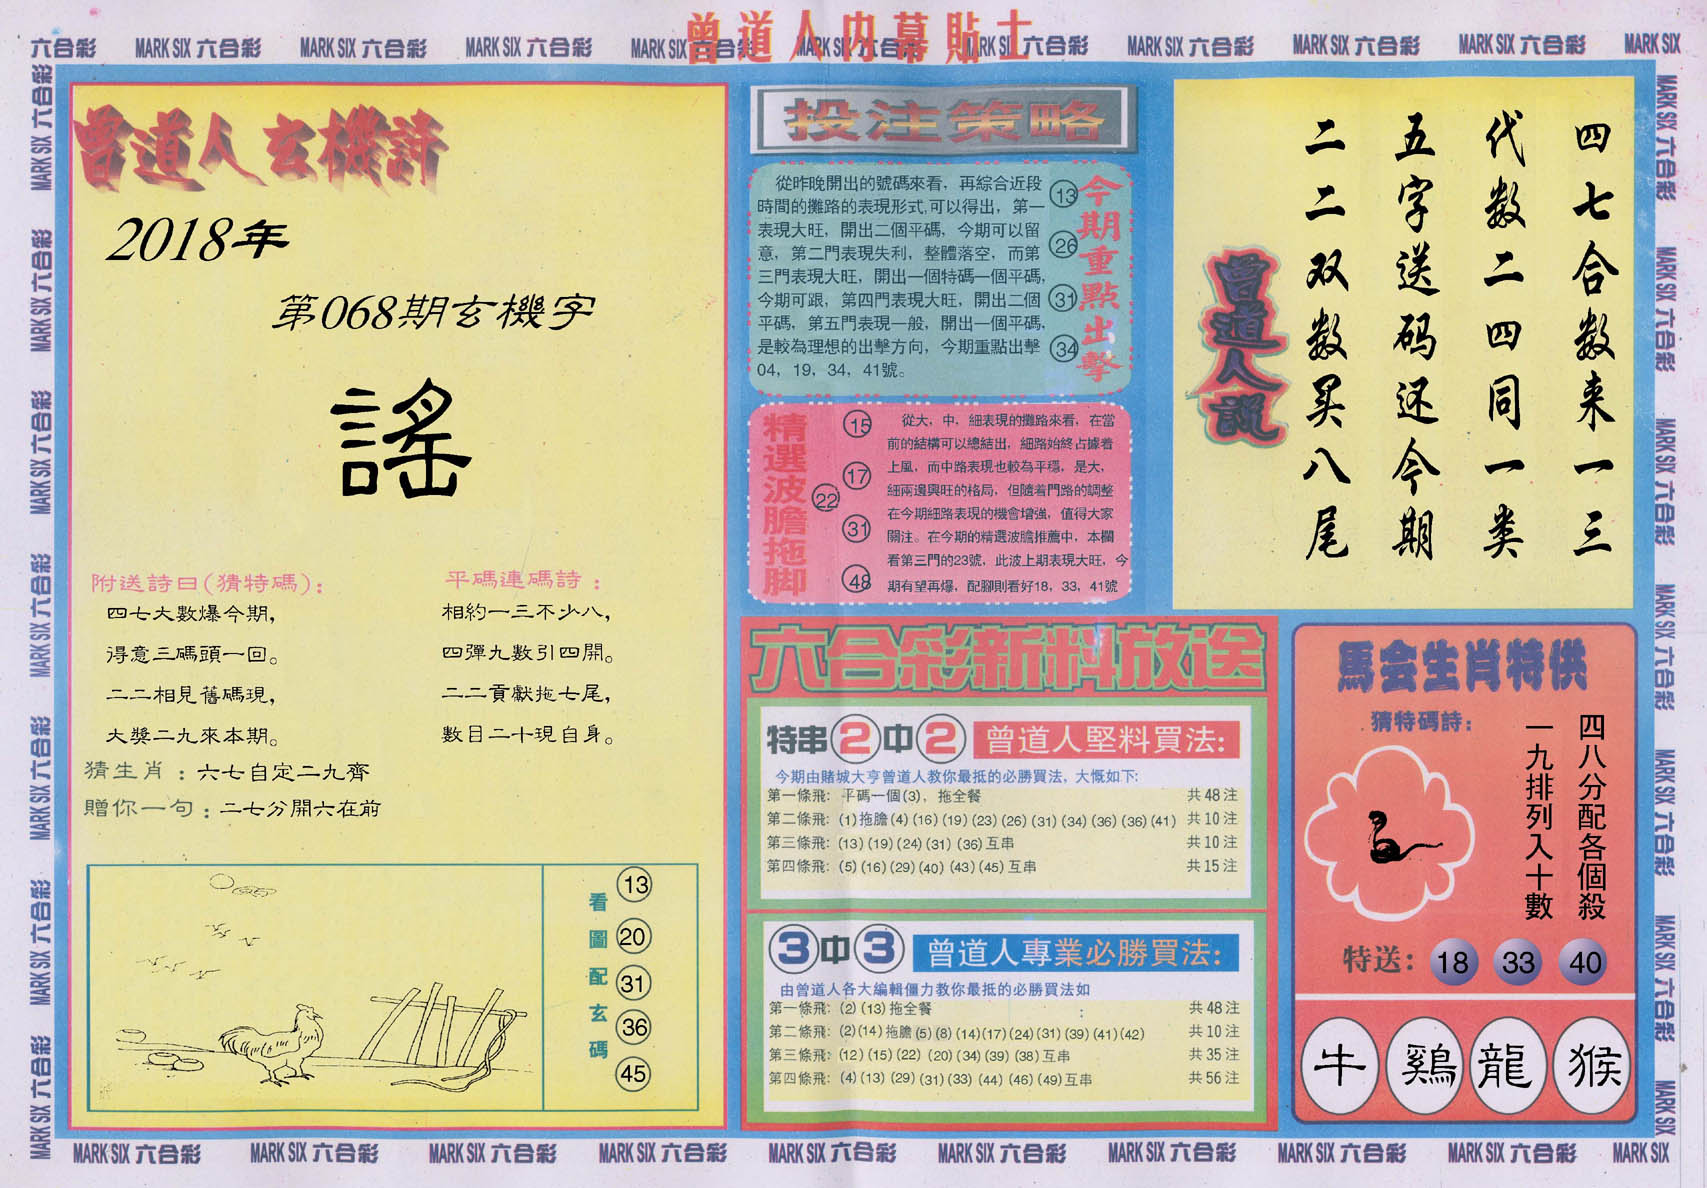 曾道人内幕貼士
六合彩 MARK SIX 六合彩 MARK SIX 六合彩 MARK SIX 六合彩 MARK SIX 六合彩 MARK SIX 六合彩 MARK SIX 六合彩 MARK SIX 六合彩 MARK SIX 六合彩 MARK SIX 六合彩 MARK SIX
曾道人玄機詩
2018年
第068期玄機字
謠
附送詩曰(猜特碼):
四七大數爆今期,
得意三碼頭一回。
二二相見舊碼現,
大獎二九來本期。
平碼連碼詩:
相約一三不少八,
四彈九數引四開。
二二貢獻拖七尾,
數目二十現自身。
猜生肖:六七自定二九齊
贈你一句:二七分開六在前
看圖配玄碼
13
20
31
36
45
投注策略
從昨晚開出的號碼來看，再綜合近段
時間的攤路的表現形式,可以得出，第一
表現大旺，開出二個平碼，今期可以留
意，第二門表現失利，整體落空，而第
三門表現大旺，開出一個特碼一個平碼,
今期可跟，第四門表現大旺，開出二個
平碼，第五門表現一般，開出一個平碼,
是較為理想的出擊方向，今期重點出擊
04，19，34，41號。
13
26
31
34
今期重點出擊
精選波膽拖脚
15
17
22
31
48
從大，中，細表現的攤路來看，在當
前的結構可以總結出，細路始終占據着
上風，而中路表現也較為平穩，是大，
細兩邊興旺的格局，但隨着門路的調整
在今期細路表現的機會增強，值得大家
關注。在今期的精選波膽推薦中，本欄
看第三門的23號，此波上期表現大旺，今
期有望再爆，配腳則看好18，33，41號
六合彩新料放送
特串2中2 曾道人堅料買法:
今期由賭城大亨曾道人教你最抵的必勝買法，大慨如下:
第一條飛: 平碼一個(3)，拖全餐 共48注
第二條飛: (1)拖膽(4)(16)(19)(23)(26)(31)(34)(36)(36)(41) 共10注
第三條飛: (13)(19)(24)(31)(36)互串 共10注
第四條飛: (5)(16)(29)(40)(43)(45)互串 共15注
3中3 曾道人專業必勝買法:
由曾道人各大編輯僵力教你最抵的必勝買法如
第一條飛: (2)(13)拖全餐 共48注
第二條飛: (2)(14)拖膽(5)(8)(14)(17)(24)(31)(39)(41)(42) 共10注
第三條飛: (12)(15)(22)(20)(34)(39)(38)互串 共35注
第四條飛: (4)(13)(29)(31)(33)(44)(46)(49)互串 共56注
四七合数来一三
代数二四同一类
五字送码还今期
二二双数买八尾
曾道人說
馬会生肖特供
猜特碼詩:
四八分配各個殺
一九排列入十數
特送: 18 33 40
牛 鷄 龍 猴
MARK SIX 六合彩 MARK SIX 六合彩 MARK SIX 六合彩 MARK SIX 六合彩 MARK SIX 六合彩 MARK SIX 六合彩 MARK SIX 六合彩 MARK SIX 六合彩 MARK SIX 六合彩 MARK SIX